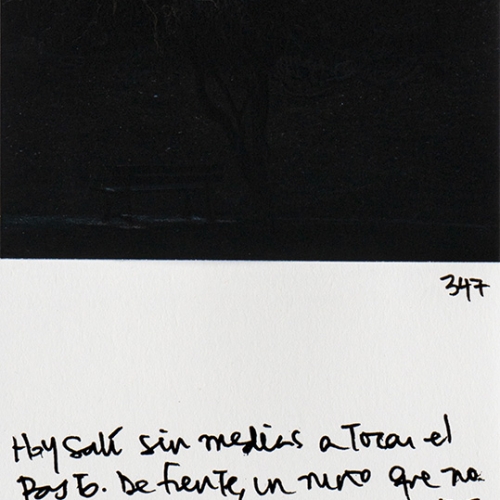 347
Hoy salí sin medias a tocar el
pasto. De frente, un muro que no